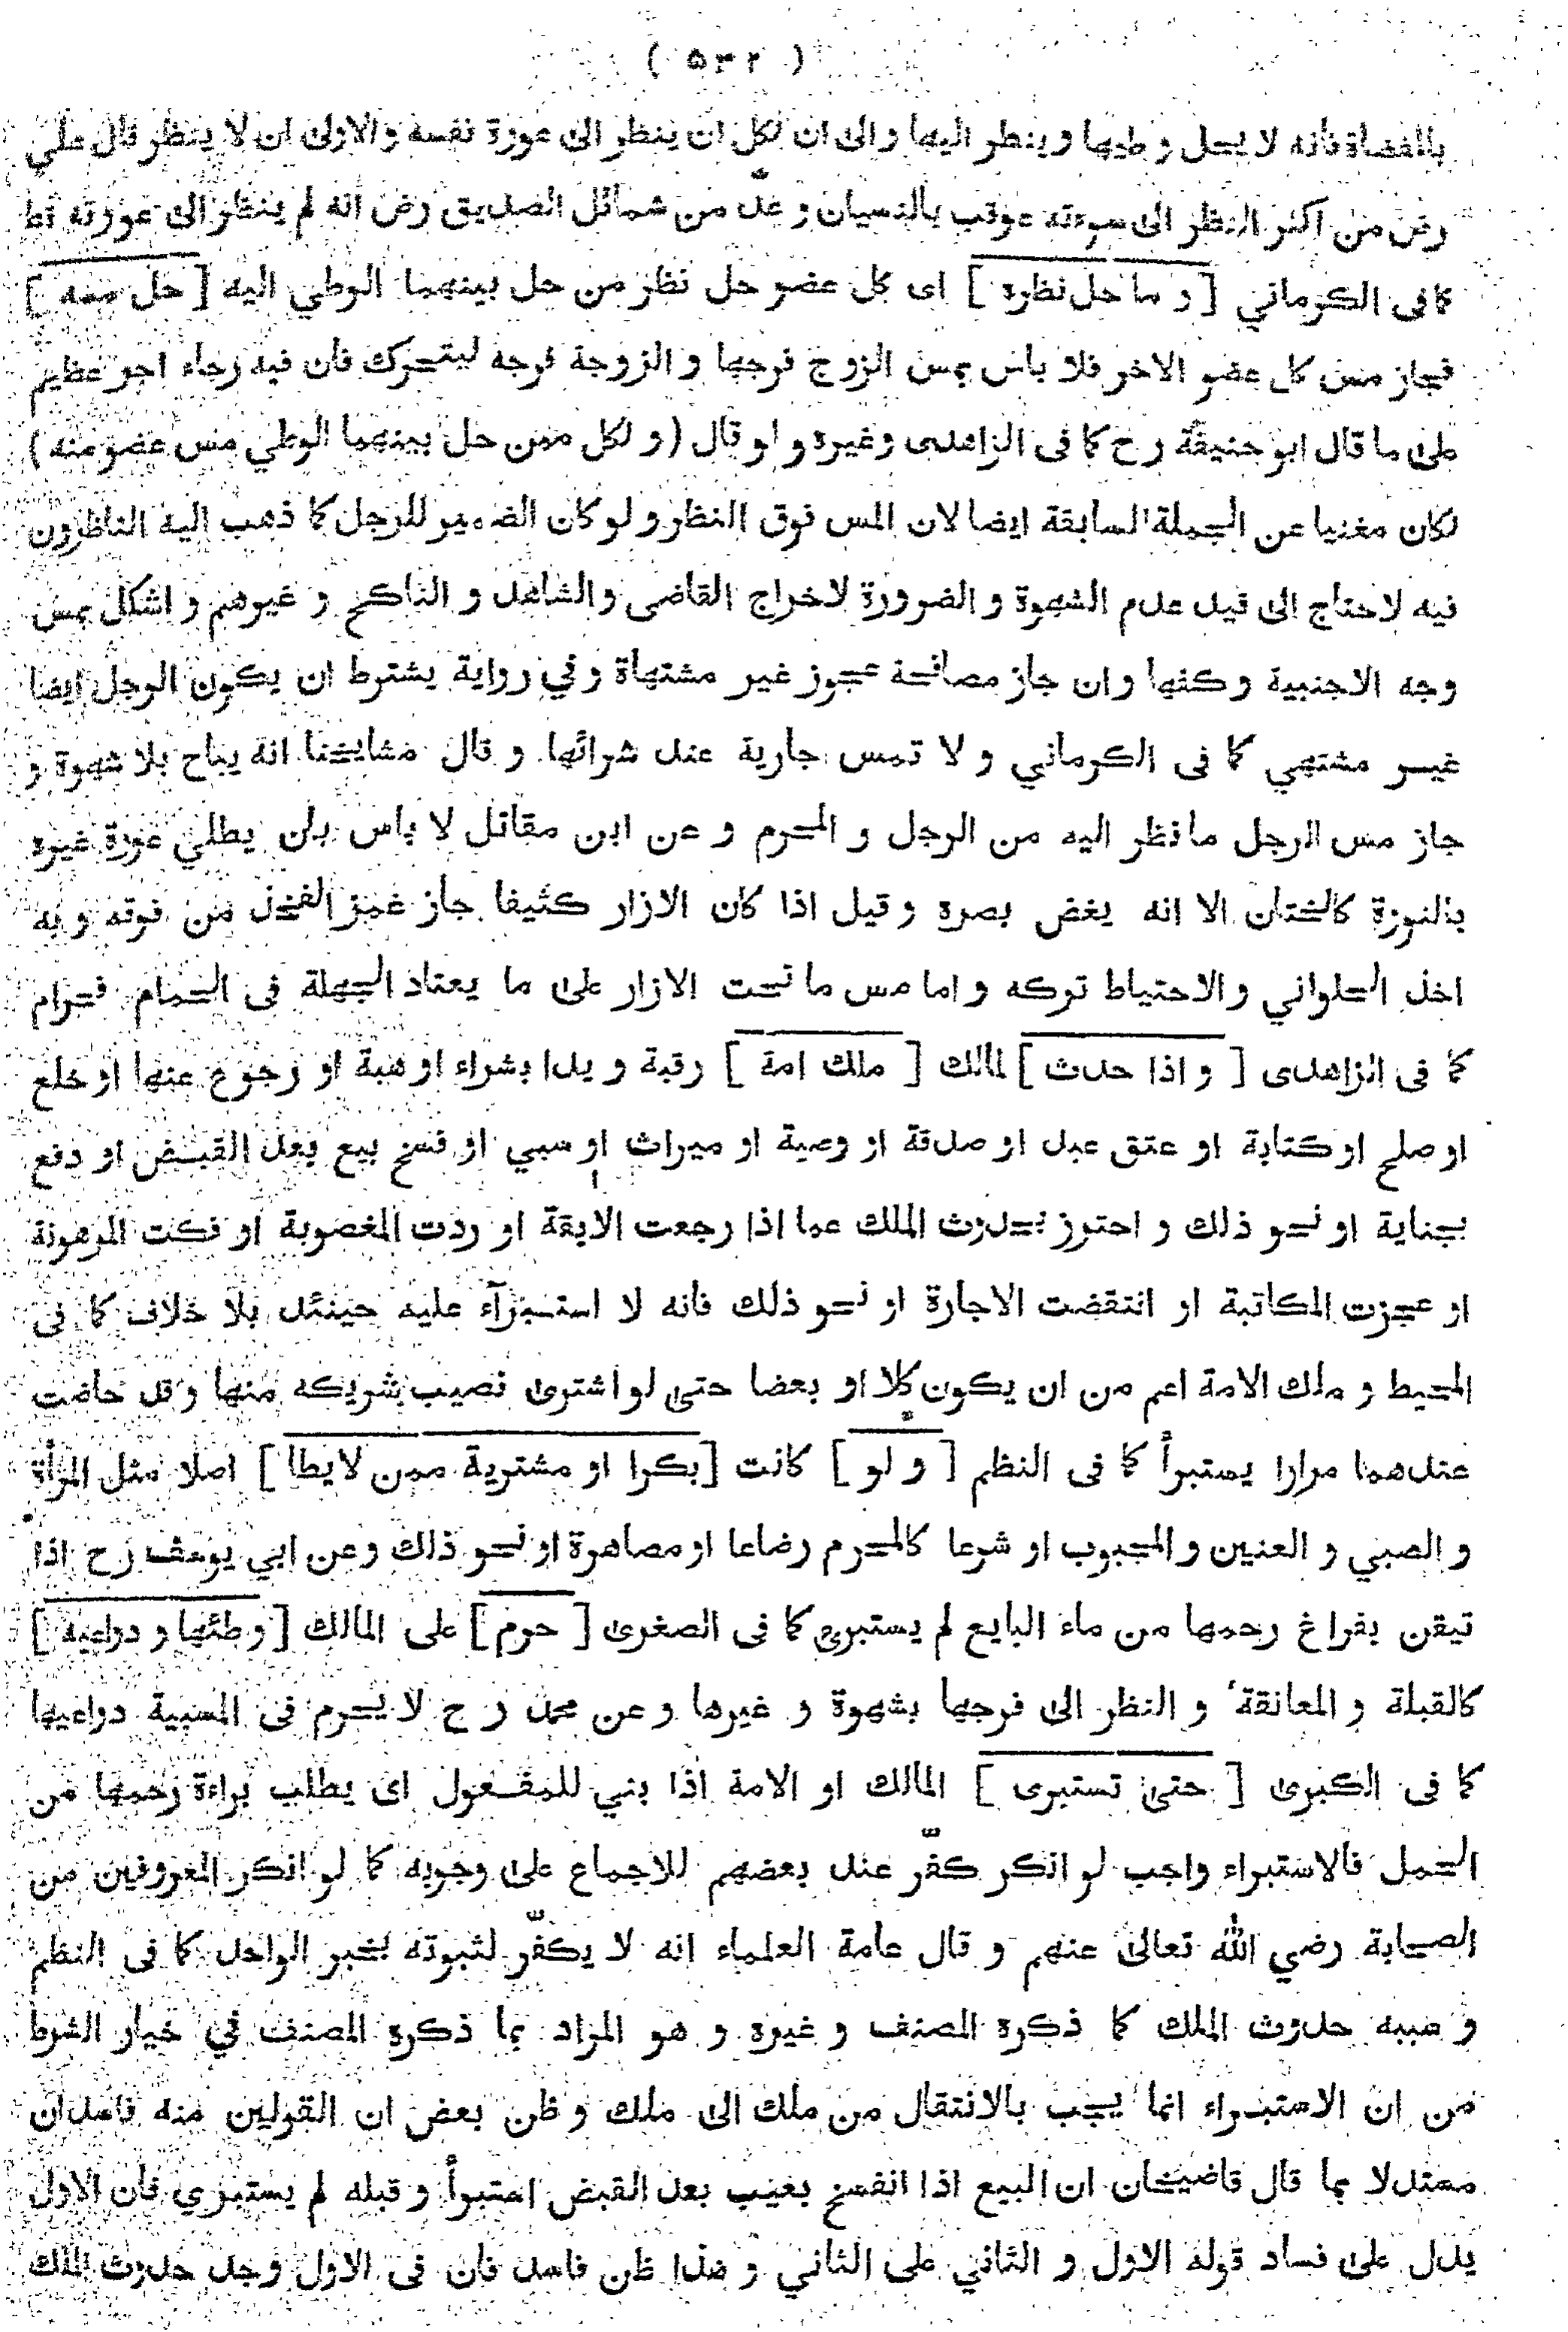 ( ۵۳۲ )
بالمفضاة فانه لا يحل وطيها وينظر اليها والى ان لكل ان ينظر الى عورة نفسه والاولى ان لا ينظر قال علي
رض من اكثر النظر الى سوءته عوقب بالنسيان وعدّ من شمائل الصديق رض انه لم ينظر الى عورته قط
كما فى الكرماني [ و ما حل نظره ] اى كل عضو حل نظر من حل بينهما الوطي اليه [ حل مسه ]
فجاز مس كل عضو الاخر فلا باس بمس الزوج فرجها و الزوجة فرجه ليتحرك فان فيه رجاء اجر عظيم
على ما قال ابو حنيفة رح كما فى الزاهدى وغيره و لو قال ( و لكل ممن حل بينهما الوطي مس عضو منه )
لكان مغنيا عن الجملة السابقة ايضا لان المس فوق النظر و لو كان الضمير للرجل كما ذهب اليه الناظرون
فيه لاحتاج الى قيد عدم الشهوة و الضرورة لاخراج القاضى والشاهد و الناكح و غيرهم و اشكل بمس
وجه الاجنبية وكفها وان جاز مصافحة عجوز غير مشتهاة وفي رواية يشترط ان يكون الرجل ايضا
غيـر مشتهي كما فى الكرماني و لا تمس جارية عند شرائها و قال مشايخنا انه يباح بلا شهوة و
جاز مس الرجل ما نظر اليه من الرجل و المحرم و عن ابن مقاتل لا باس بان يطلي عورة غيره
بالنورة كالختان الا انه يغض بصره و قيل اذا كان الازار كثيفا جاز غمز الفخذ من فوقه و به
اخذ الحلواني والاحتياط تركه و اما مس ما تحت الازار على ما يعتاد الجهلة فى الحمام فحرام
كما فى الزاهدى [ و اذا حدث ] لمالك [ ملك امة ] رقبة و يدا بشراء او هبة او رجوع عنها او خلع
او صلح او كتابة او عتق عبد او صدقة او وصية او ميراث او سبي او فسخ بيع بعد القبـض او دفع
بجناية او نحو ذلك و احترز بحدوث الملك عما اذا رجعت الابقة او ردت المغصوبة او فكت المرهونة
او عجزت المكاتبة او انتقضت الاجارة او نحو ذلك فانه لا استـبرآء عليه حينئذ بلا خلاف كما فى
المحيط و ملك الامة اعم من ان يكون كلا او بعضا حتى لو اشترى نصيب شريكه منها و قد حاضت
عندهما مرارا يستبرأ كما فى النظم [ و لو ] كانت [ بكرا او مشترية ممن لا يطا ] اصلا مثل المرأة
و الصبي و العنين و المجبوب او شرعا كالمحرم رضاعا او مصاهرة او نحو ذلك وعن ابي يوسف رح اذا
تيقن بفراغ رحمها من ماء البايع لم يستبرئ كما فى الصغرى [ حرم ] على المالك [ وطئها و دواعيه ]
كالقبلة و المعانقة و النظر الى فرجها بشهوة و غيرها و عن محمد رح لا يحرم فى المسبية دواعيها
كما فى الكبرى [ حتى تستبرى ] المالك او الامة اذا بني للمفـعول اى يطلب براءة رحمها من
الحمل فالاستبراء واجب لو انكر كفّر عند بعضهم للاجماع على وجوبه كما لو انكر المعروفين من
الصحابة رضي الله تعالى عنهم و قال عامة العلماء انه لا يكفّر لثبوته بخبر الواحد كما فى النظم
و سببه حدوث الملك كما ذكره المصنف و غيره و هو المراد بما ذكره المصنف في خيار الشرط
من ان الاستبـراء انما يجب بالانتقال من ملك الى ملك و ظن بعض ان القولين منه فاسدان
مستدلا بما قال قاضيخان ان البيع اذا انفسخ بعيب بعد القبض استبرأ و قبله لم يستبرئ فان الاول
يدل على فساد قوله الاول و الثاني على الثاني و هذا ظن فاسد فان فى الاول وجد حدوث الملك